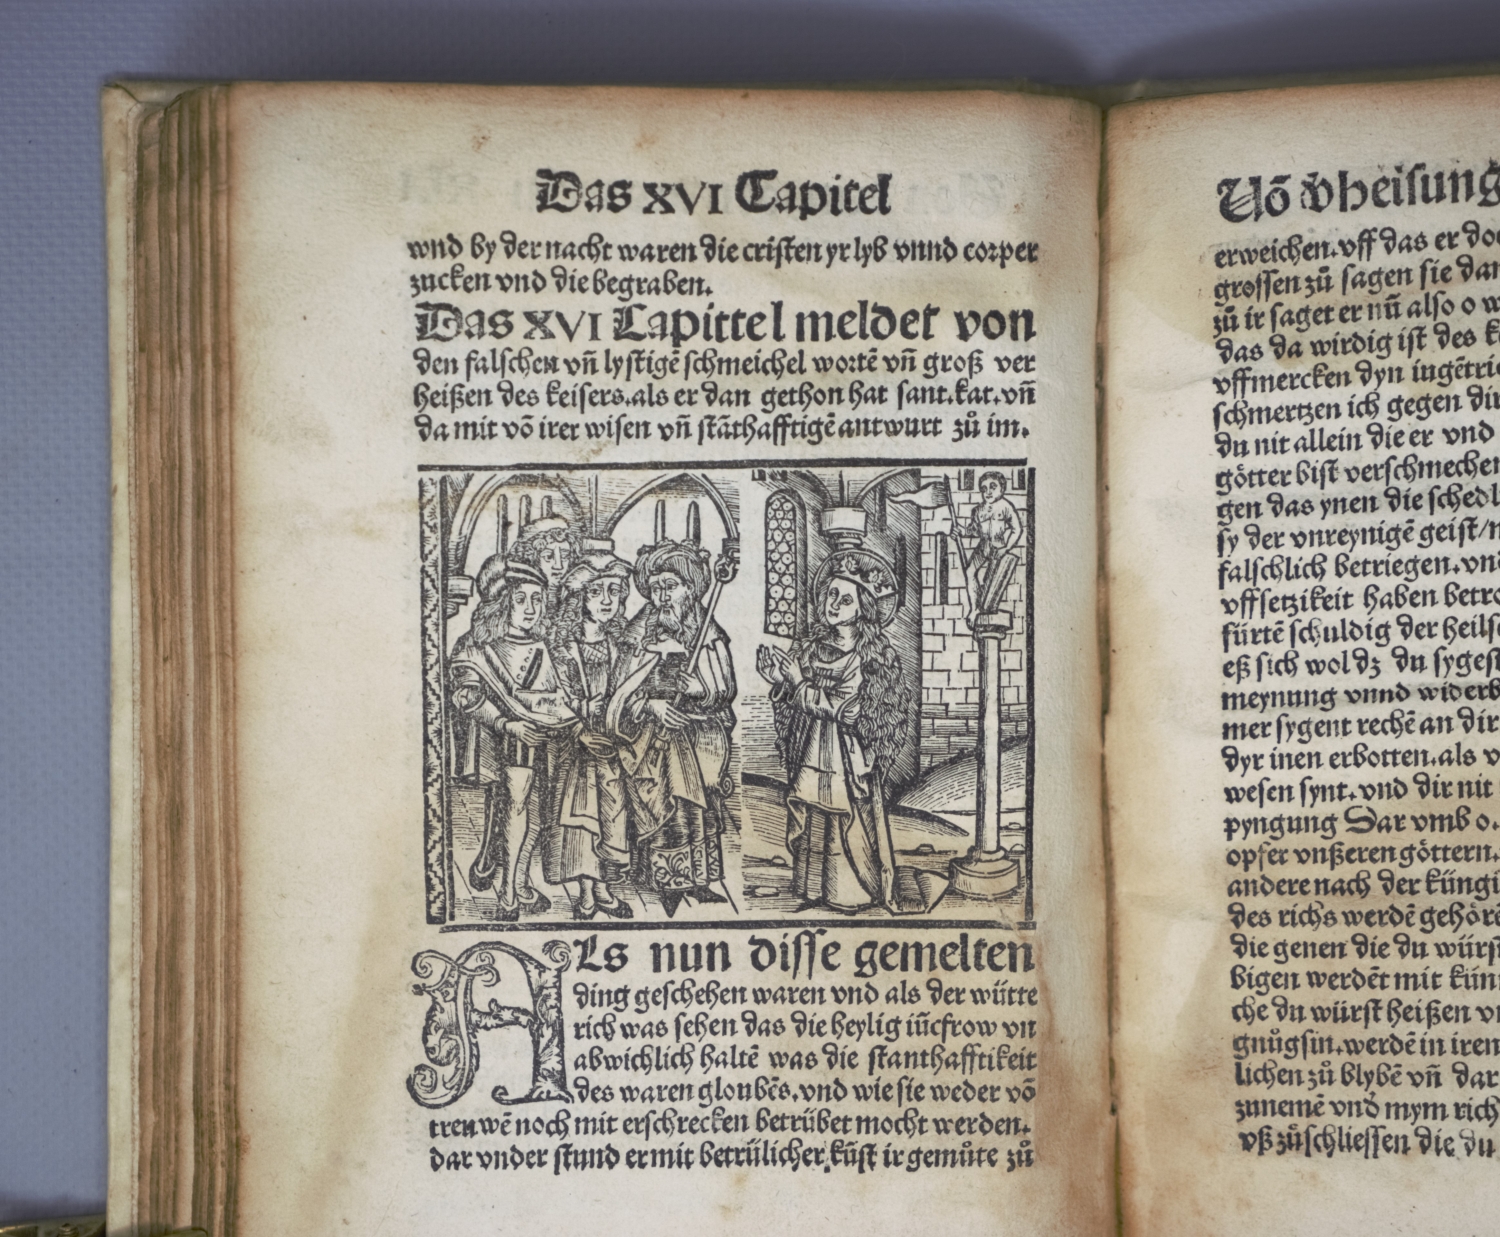 Das XVI Capitel
wnd by der nacht waren die cristen yr lyb vnnd corper
zucken vnd die begraben.
Das XVI Capittel meldet von
den falschen vñ lystigē schmeichel wortē vñ groß ver
heißen des keisers.als er dan gethon hat sant.kat.vñ
da mit vō irer wisen vñ stāthafftigē antwurt zů im.
ALs nun disse gemelten
ding geschehen waren vnd als der wütte
rich was sehen das die heylig iūcfrow vn
abwichlich haltē was die stanthafftikeit
des waren gloubēs.vnd wie sie weder vō
trenwē noch mit erschrecken betrübet mocht werden.
dar vnder stund er mit betrülicher kūst ir gemůte zů
Uō vheisung
erweichen.vff das er
grossen zů sagen sie
zů ir saget er nū also o
das da wirdig ist des
vffmercken dyn
schmertzen ich gegen
du nit allein die er vnd
götter bist
gen das ynen die
sy der vnreynigē geist/
falschlich betriegen.
vffsetzikeit haben
fürtē schuldig der
eß sich wol dz du
meynung vnnd
mer sygent rechē an dir
dyr inen erbotten.als
wesen synt.vnd dir nit
pyngung Dar vmb o.
opfer vnßeren göttern.
andere nach der
des richs werdē
die genen die du
bigen werdēt mit
che du würst heißen
gnůgsin.werdē in iren
lichen zů blybē vñ dar
zunemē vnd mym rich
vß zůschliessen die du